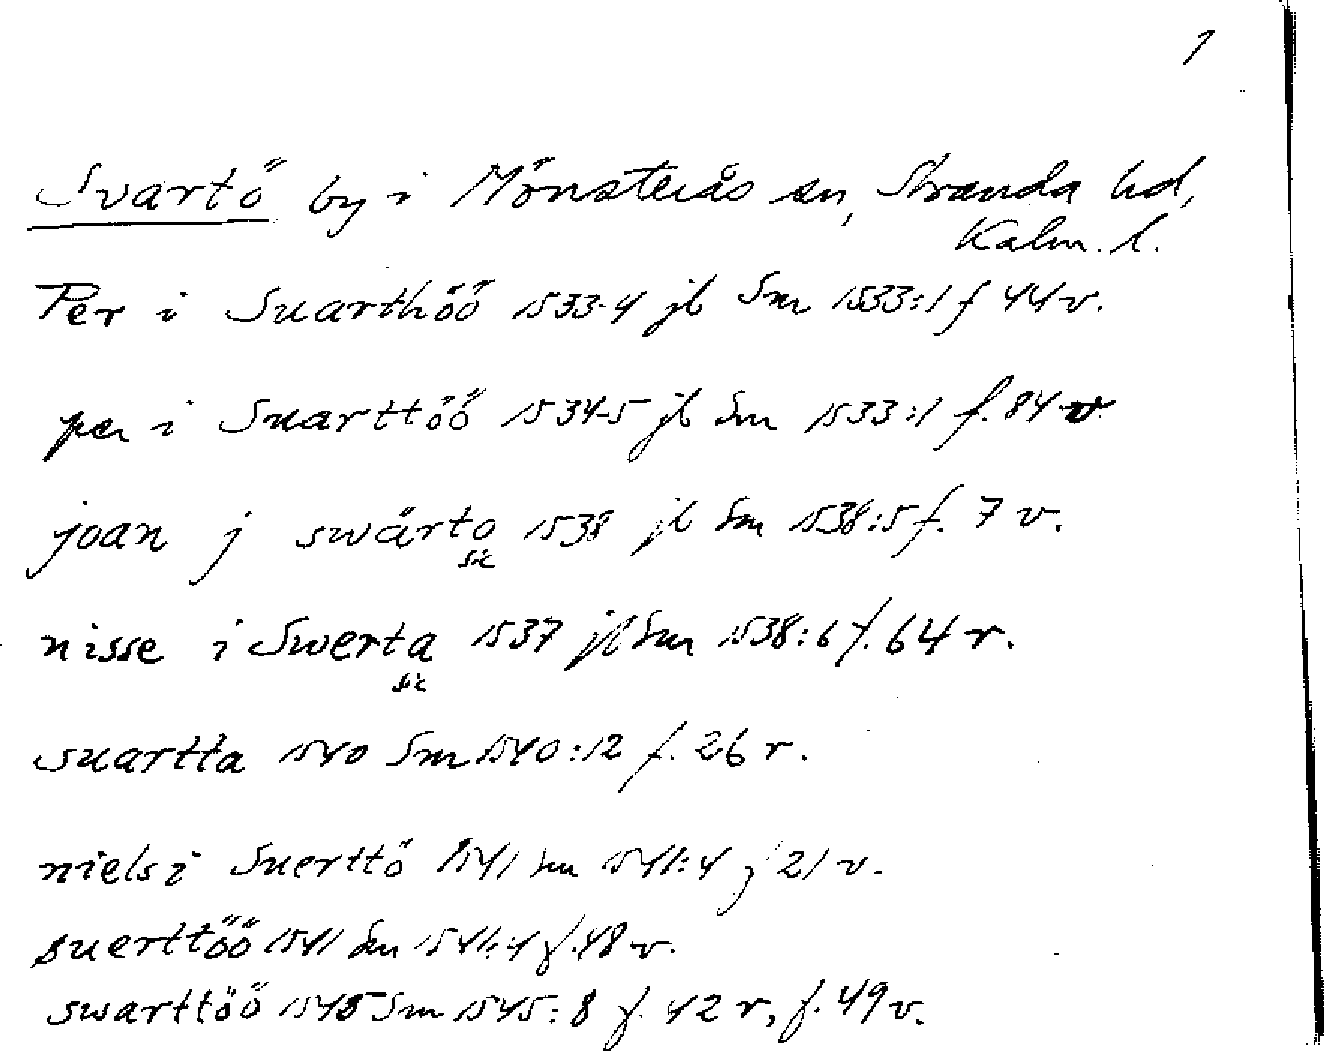 1
Svartö by i Mönsterås sn, Stranda hd,
Kalm. l.
Per i Suarthöö 1533-4 jb Sm 1533:1 f 44 v.
per i Suarttöö 1534-5 jb Sm 1533:1 f. 84 v.
joan j swärto 1538 jb Sm 1538:5 f. 7 v.
sic
nisse i Swerta 1537 jb Sm 1538:6 f. 64 r.
sic
suartta 1540 Sm 1540:12 f. 26 r.
niels i Suerttö 1541 Sm 1541:4 f 21 v.
suerttöö 1541 Sm 1541:4 f. 48 v.
swarttöö 1545 Sm 1545:8 f. 42 r, f. 49 v.